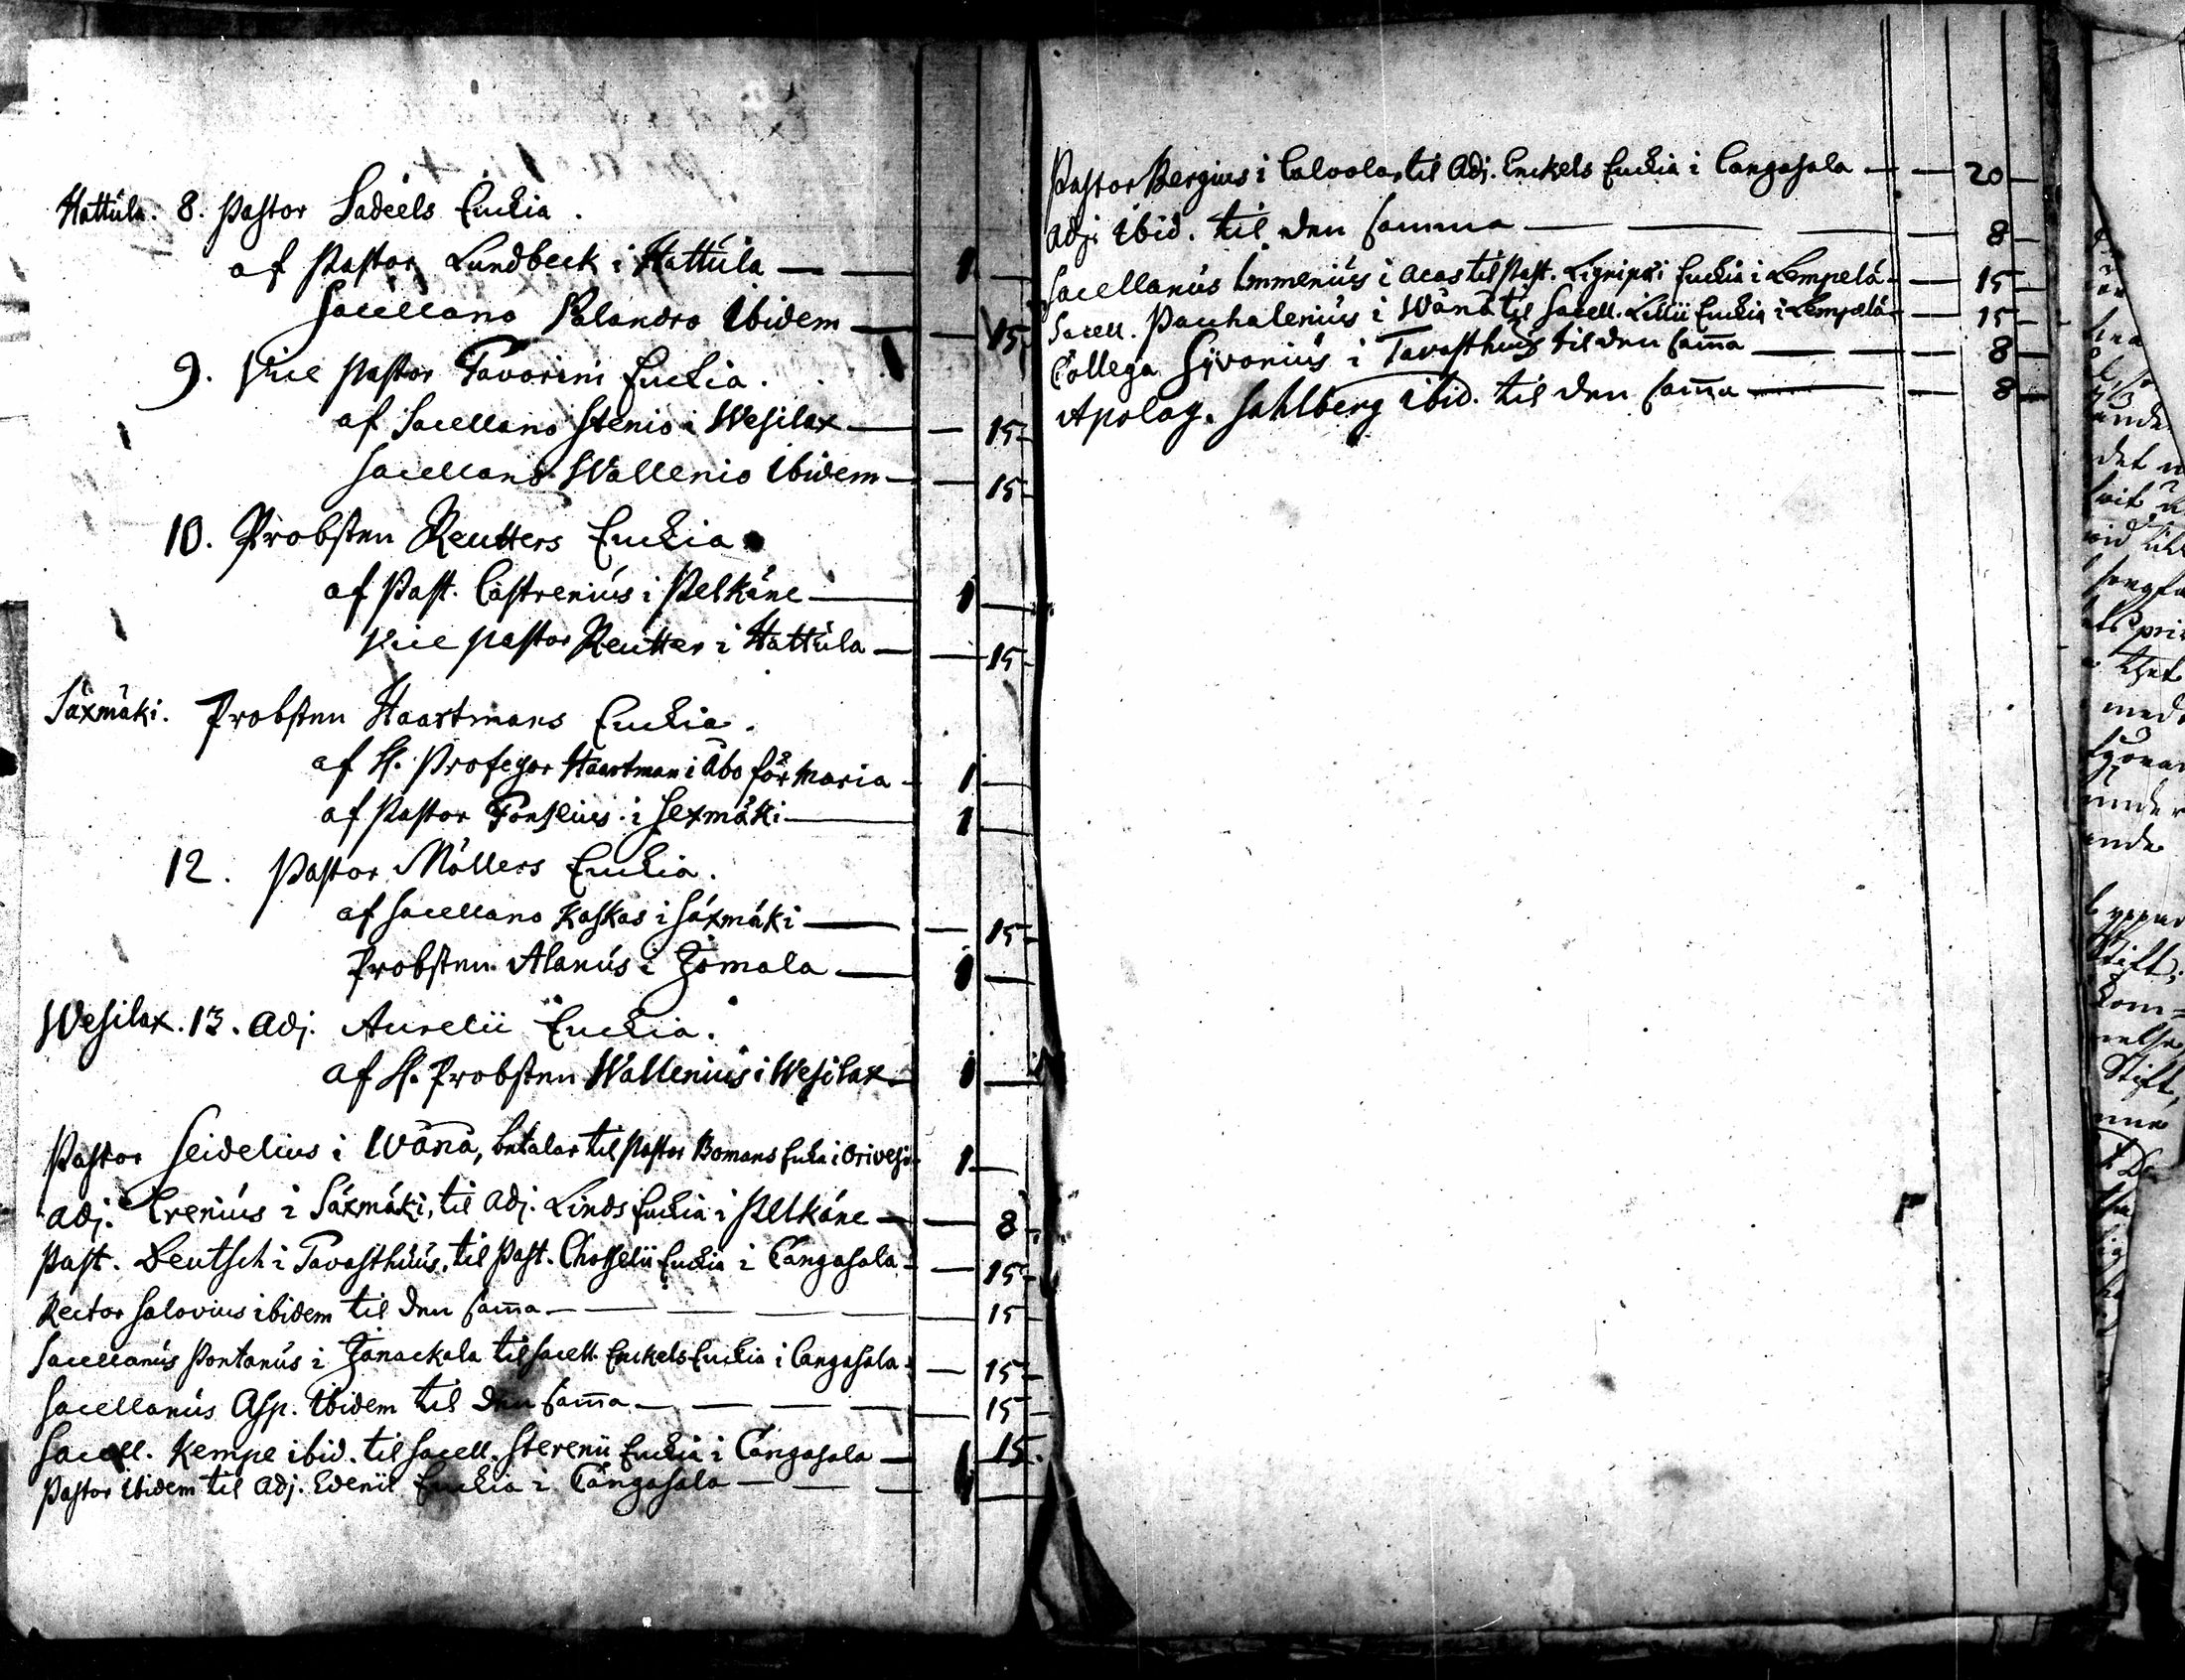 Hattula. 8. Pastor Sadeels Enckia.
af Pastor Lundbeck i Hattula — 1 —
Sacellano Polandro Ibidem — 15
9. Vice Pastor Favorini Enckia.
af Sacellano Stenio i Wesilax — 15
Sacellano Wallenio Ibidem — 15
10. Probsten Reutters Enckia
af Past. Castrenius i Pelkäne — 1 —
Vice Pastor Reutter i Hattula — 15
Säxmäki. Probsten Haartmans Enckia.
af H. Professor Haartman i Åbo för Maria — 1 —
af Pastor Fonselius i Sexmäki — 1 —
12. Pastor Möllers Enckia.
af Sacellano Kaskas i Säxmäki — 15
Probsten Alanus i Jomala — 1 —
Wesilax. 13. Adj. Aurelii Enckia.
af H. Probsten Wallenius i Wesilax — 1 —
Pastor Seidelius i Wånå, betalar til Pastor Bomans Enka i Orivesi 1 —
Adj. Irenius i Säxmäki, til Adj. Linds Enckia i Pelkäne — 8
Past. Deutsch i Tavasthuus, til Past. Chorselii Enckia i Cangasala — 15
Rector Salovius ibidem til den samma — 15
Sacellanus Pontanus i Janackala til Sacell. Enckels Enckia i Cangasala — 15
Sacellanus Asp. Ibidem til den samma — 15
Sacell. Kempe ibid. til Sacell. Sterenii Enckia i Cangasala — 15
Pastor Ibidem til Adj. Edenii Enckia i Cangasala — 1 —
Pastor Bergius i Calvola, til Adj. Enckels Enckia i Cangasala — 20
Adj. Ibid. til den samma — 8
Sacellanus Immenius i Acas til Past. Lignipæi Enckia i Lempelä — 15
Sacell. Pacchalenius i Wånå til Sacell. Lilii Enckia i Lempelä — 15
Collega Syvonius i Tavasthuus til den samma — 8
Apolog. Sahlberg ibid. til den samma — 8